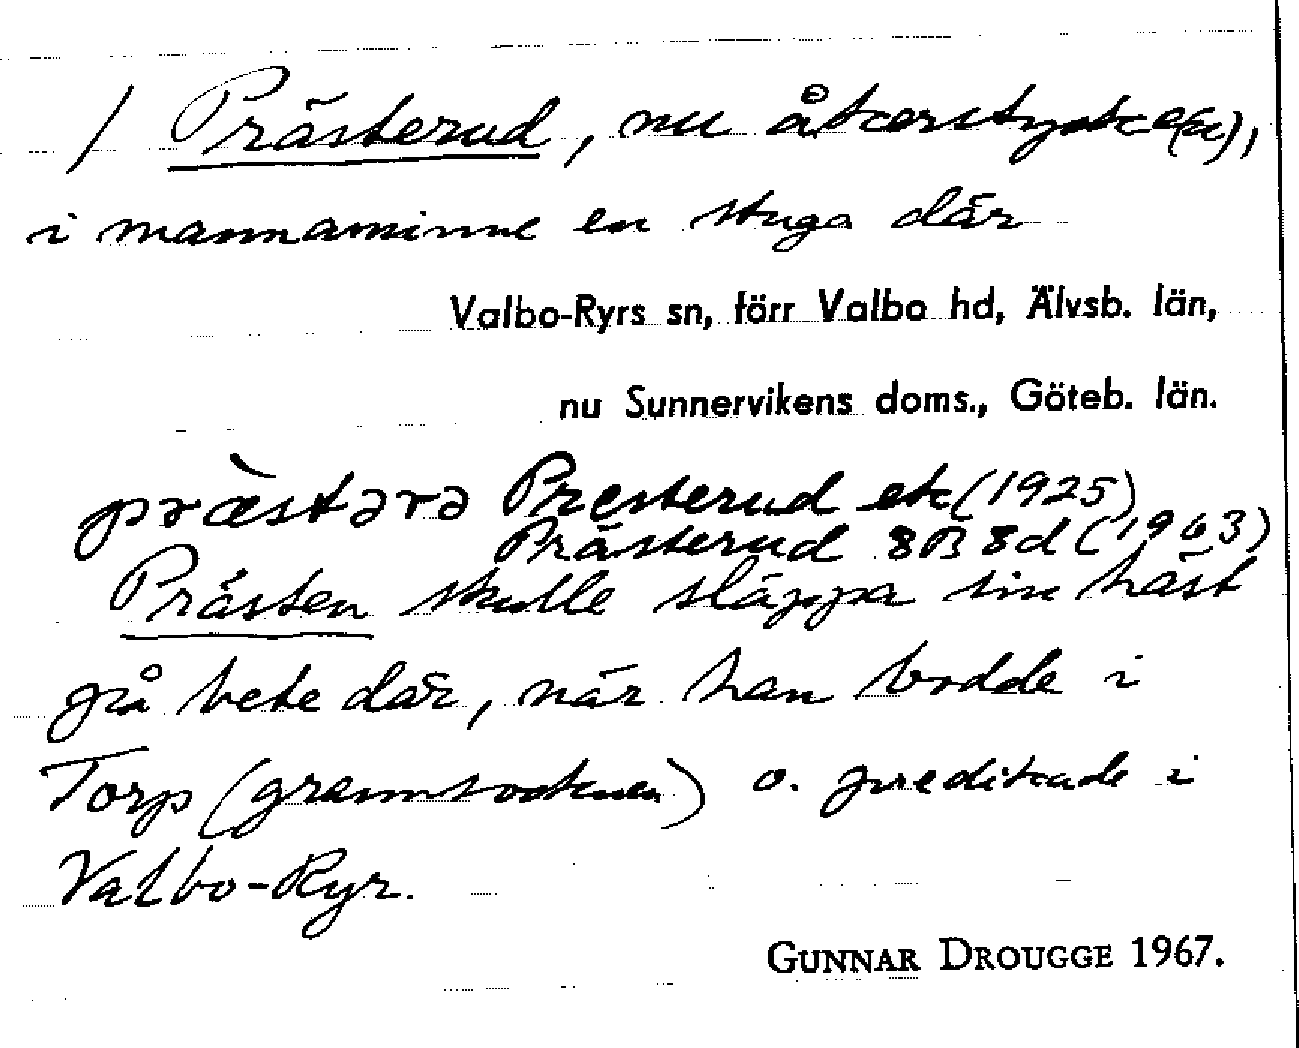 / Prästerud, nu åkerstycke(n),
i mannaminne en stuga där
Valbo-Ryrs sn, förr Valbo hd, Älvsb. län,
nu Sunnervikens doms., Göteb. län.
præ̀stərə Presterud ek (1925)
Prästerud 8B 8d (1963)
Prästen skulle släppa sin häst
på bete där, när han bodde i
Torp (grannsocknen) o. predikade i
Valbo-Ryr.
GUNNAR DROUGGE 1967.